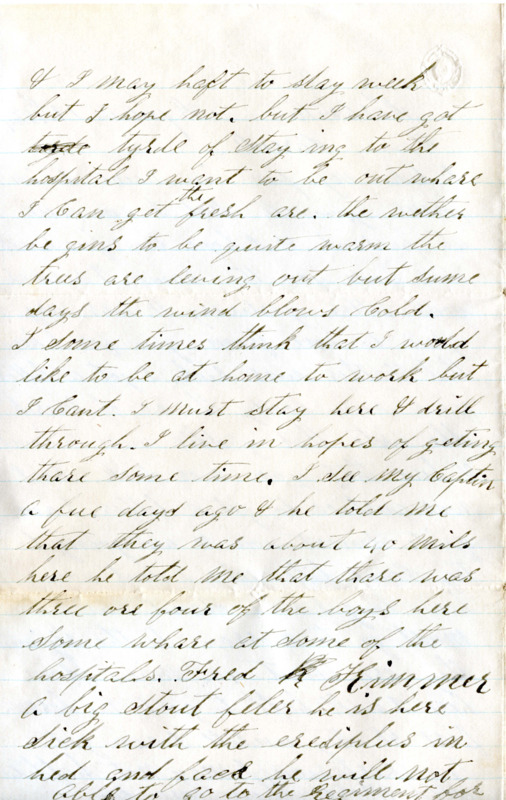 & I may haft to stay week
but I hope not. but I have got
tyrde of Staying to the
hospital I want to be out whare
I Can get the fresh are. the wether
be gins to be quite warm the
trus are leving out but sume
days the wind blows Cold.
I some times think that I would
like to be at home to work but
I Cant. I must stay here & drill
through. I live in hopes of geting
thare some time. I see my Captin
a fue days ago & he told me
that they was about 40 mils
here he told me that thare was
three ore four of the boys here
some whare at some of the
hospitals. Fred Kimmer
a big stout feler he is here
sick with the erediplus in
hed and face he will not
able to go to the regiment for